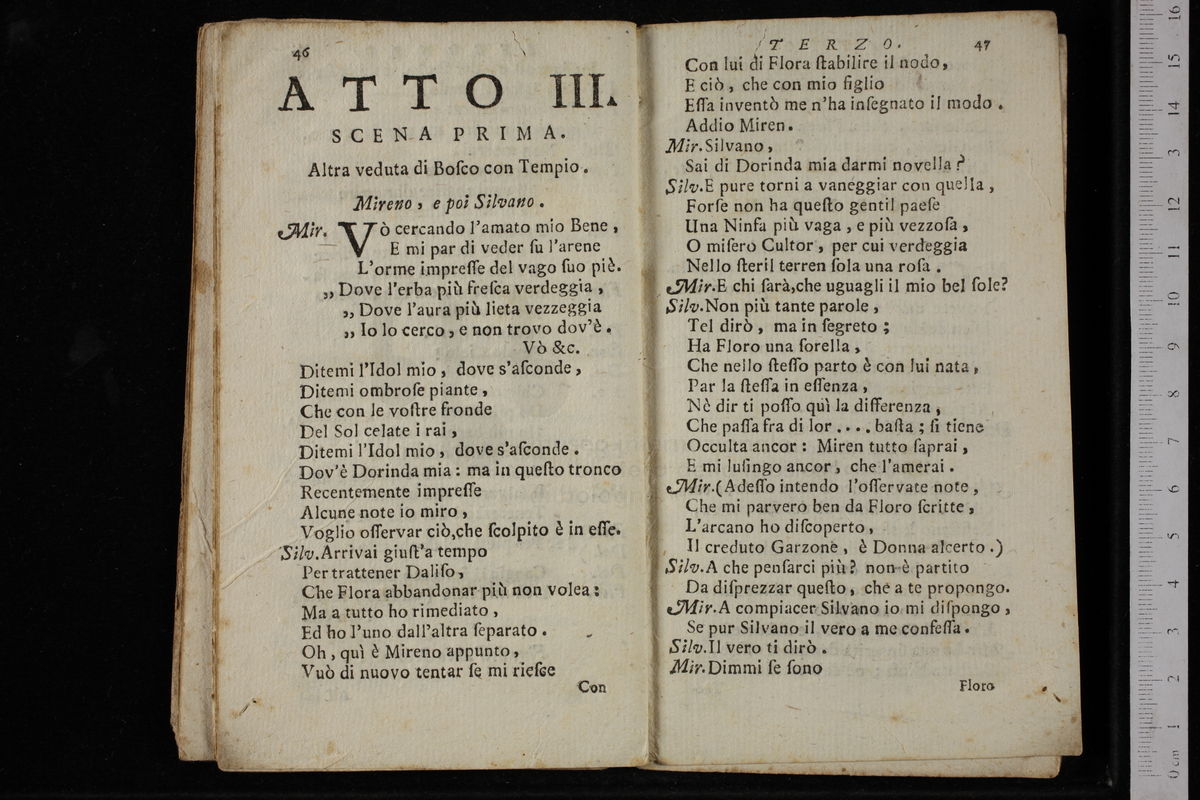 46
ATTO III.
SCENA PRIMA.
Altra veduta di Boſco con Tempio.
Mireno, e poi Silvano.
Mir. Vò cercando l'amato mio Bene,
E mi par di veder ſu l'arene
L'orme impreſſe del vago ſuo piè.
„ Dove l'erba più freſca verdeggia,
„ Dove l'aura più lieta vezzeggia
„ Io lo cerco, e non trovo dov'è.
Vò &c.
Ditemi l'Idol mio, dove s'aſconde,
Ditemi ombroſe piante,
Che con le voſtre fronde
Del Sol celate i rai,
Ditemi l'Idol mio, dove s'aſconde.
Dov'è Dorinda mia: ma in queſto tronco
Recentemente impreſſe
Alcune note io miro,
Voglio oſſervar ciò,che ſcolpito è in eſſe.
Silv.Arrivai giuſt'a tempo
Per trattener Daliſo,
Che Flora abbandonar più non volea:
Ma a tutto ho rimediato,
Ed ho l'uno dall'altra ſeparato.
Oh, quì è Mireno appunto,
Vuò di nuovo tentar ſe mi rieſce
Con
TERZO.
47
Con lui di Flora ſtabilire il nodo,
E ciò, che con mio figlio
Eſſa inventò me n'ha inſegnato il modo.
Addio Miren.
Mir.Silvano,
Sai di Dorinda mia darmi novella?
Silv.E pure torni a vaneggiar con quella,
Forſe non ha queſto gentil paeſe
Una Ninfa più vaga, e più vezzoſa,
O miſero Cultor, per cui verdeggia
Nello ſteril terren ſola una roſa.
Mir.E chi ſarà,che uguagli il mio bel ſole?
Silv.Non più tante parole,
Tel dirò, ma in ſegreto;
Ha Floro una ſorella,
Che nello ſteſſo parto è con lui nata,
Par la ſteſſa in eſſenza,
Nè dir ti poſſo quì la differenza,
Che paſſa fra di lor .... baſta; ſi tiene
Occulta ancor: Miren tutto ſaprai,
E mi luſingo ancor, che l'amerai.
Mir.(Adeſſo intendo l'oſſervate note,
Che mi parvero ben da Floro ſcritte,
L'arcano ho diſcoperto,
Il creduto Garzone, è Donna alcerto.)
Silv.A che penſarci più? non è partito
Da diſprezzar queſto, che a te propongo.
Mir.A compiacer Silvano io mi diſpongo,
Se pur Silvano il vero a me confeſſa.
Silv.Il vero ti dirò.
Mir.Dimmi ſe ſono
Floro
0 cm 1 2 3 4 5 6 7 8 9 10 11 12 13 14 15 16